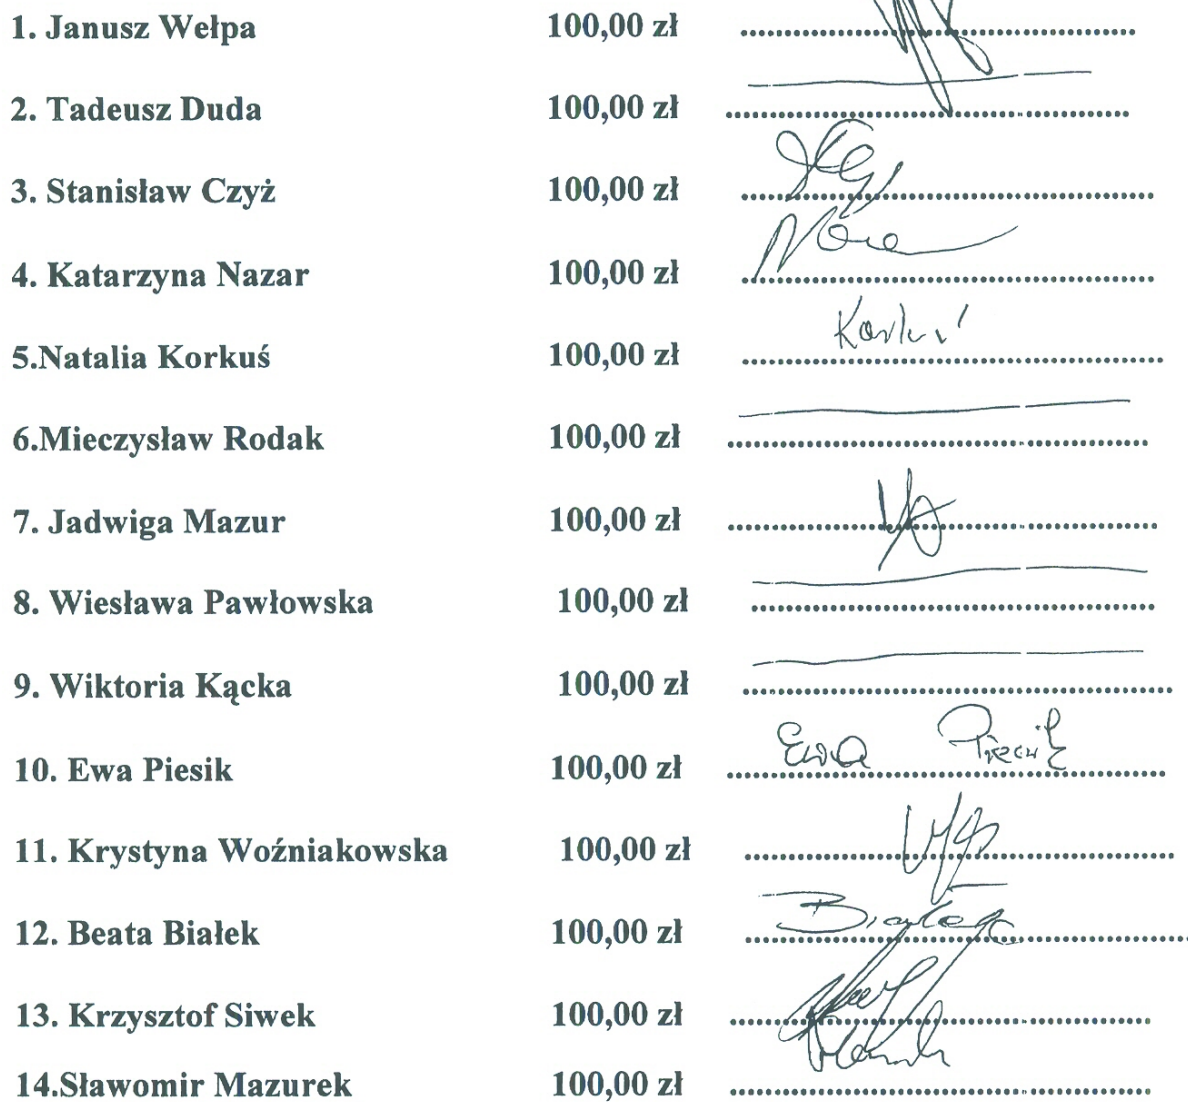 1. Janusz Wełpa 100,00 zł
2. Tadeusz Duda 100,00 zł
3. Stanisław Czyż 100,00 zł
4. Katarzyna Nazar 100,00 zł
5.Natalia Korkuś 100,00 zł Korkuś
6.Mieczysław Rodak 100,00 zł
7. Jadwiga Mazur 100,00 zł
8. Wiesława Pawłowska 100,00 zł
9. Wiktoria Kącka 100,00 zł
10. Ewa Piesik 100,00 zł Ewa Piesik
11. Krystyna Woźniakowska 100,00 zł
12. Beata Białek 100,00 zł
13. Krzysztof Siwek 100,00 zł
14.Sławomir Mazurek 100,00 zł